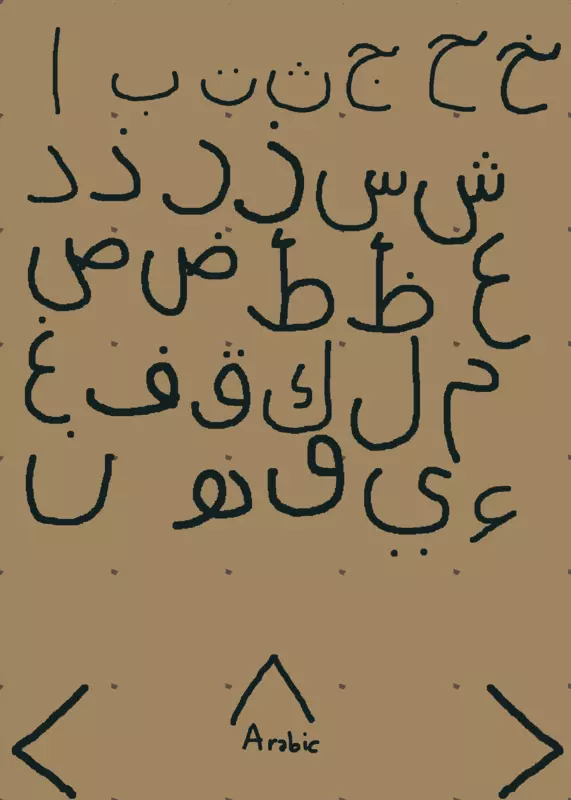 ا ب ت ث ج ح خ
د ذ ر ز س ش
ص ض ط ظ ع
غ ف ق ك ل م
ن ه و ي ء
Arabic